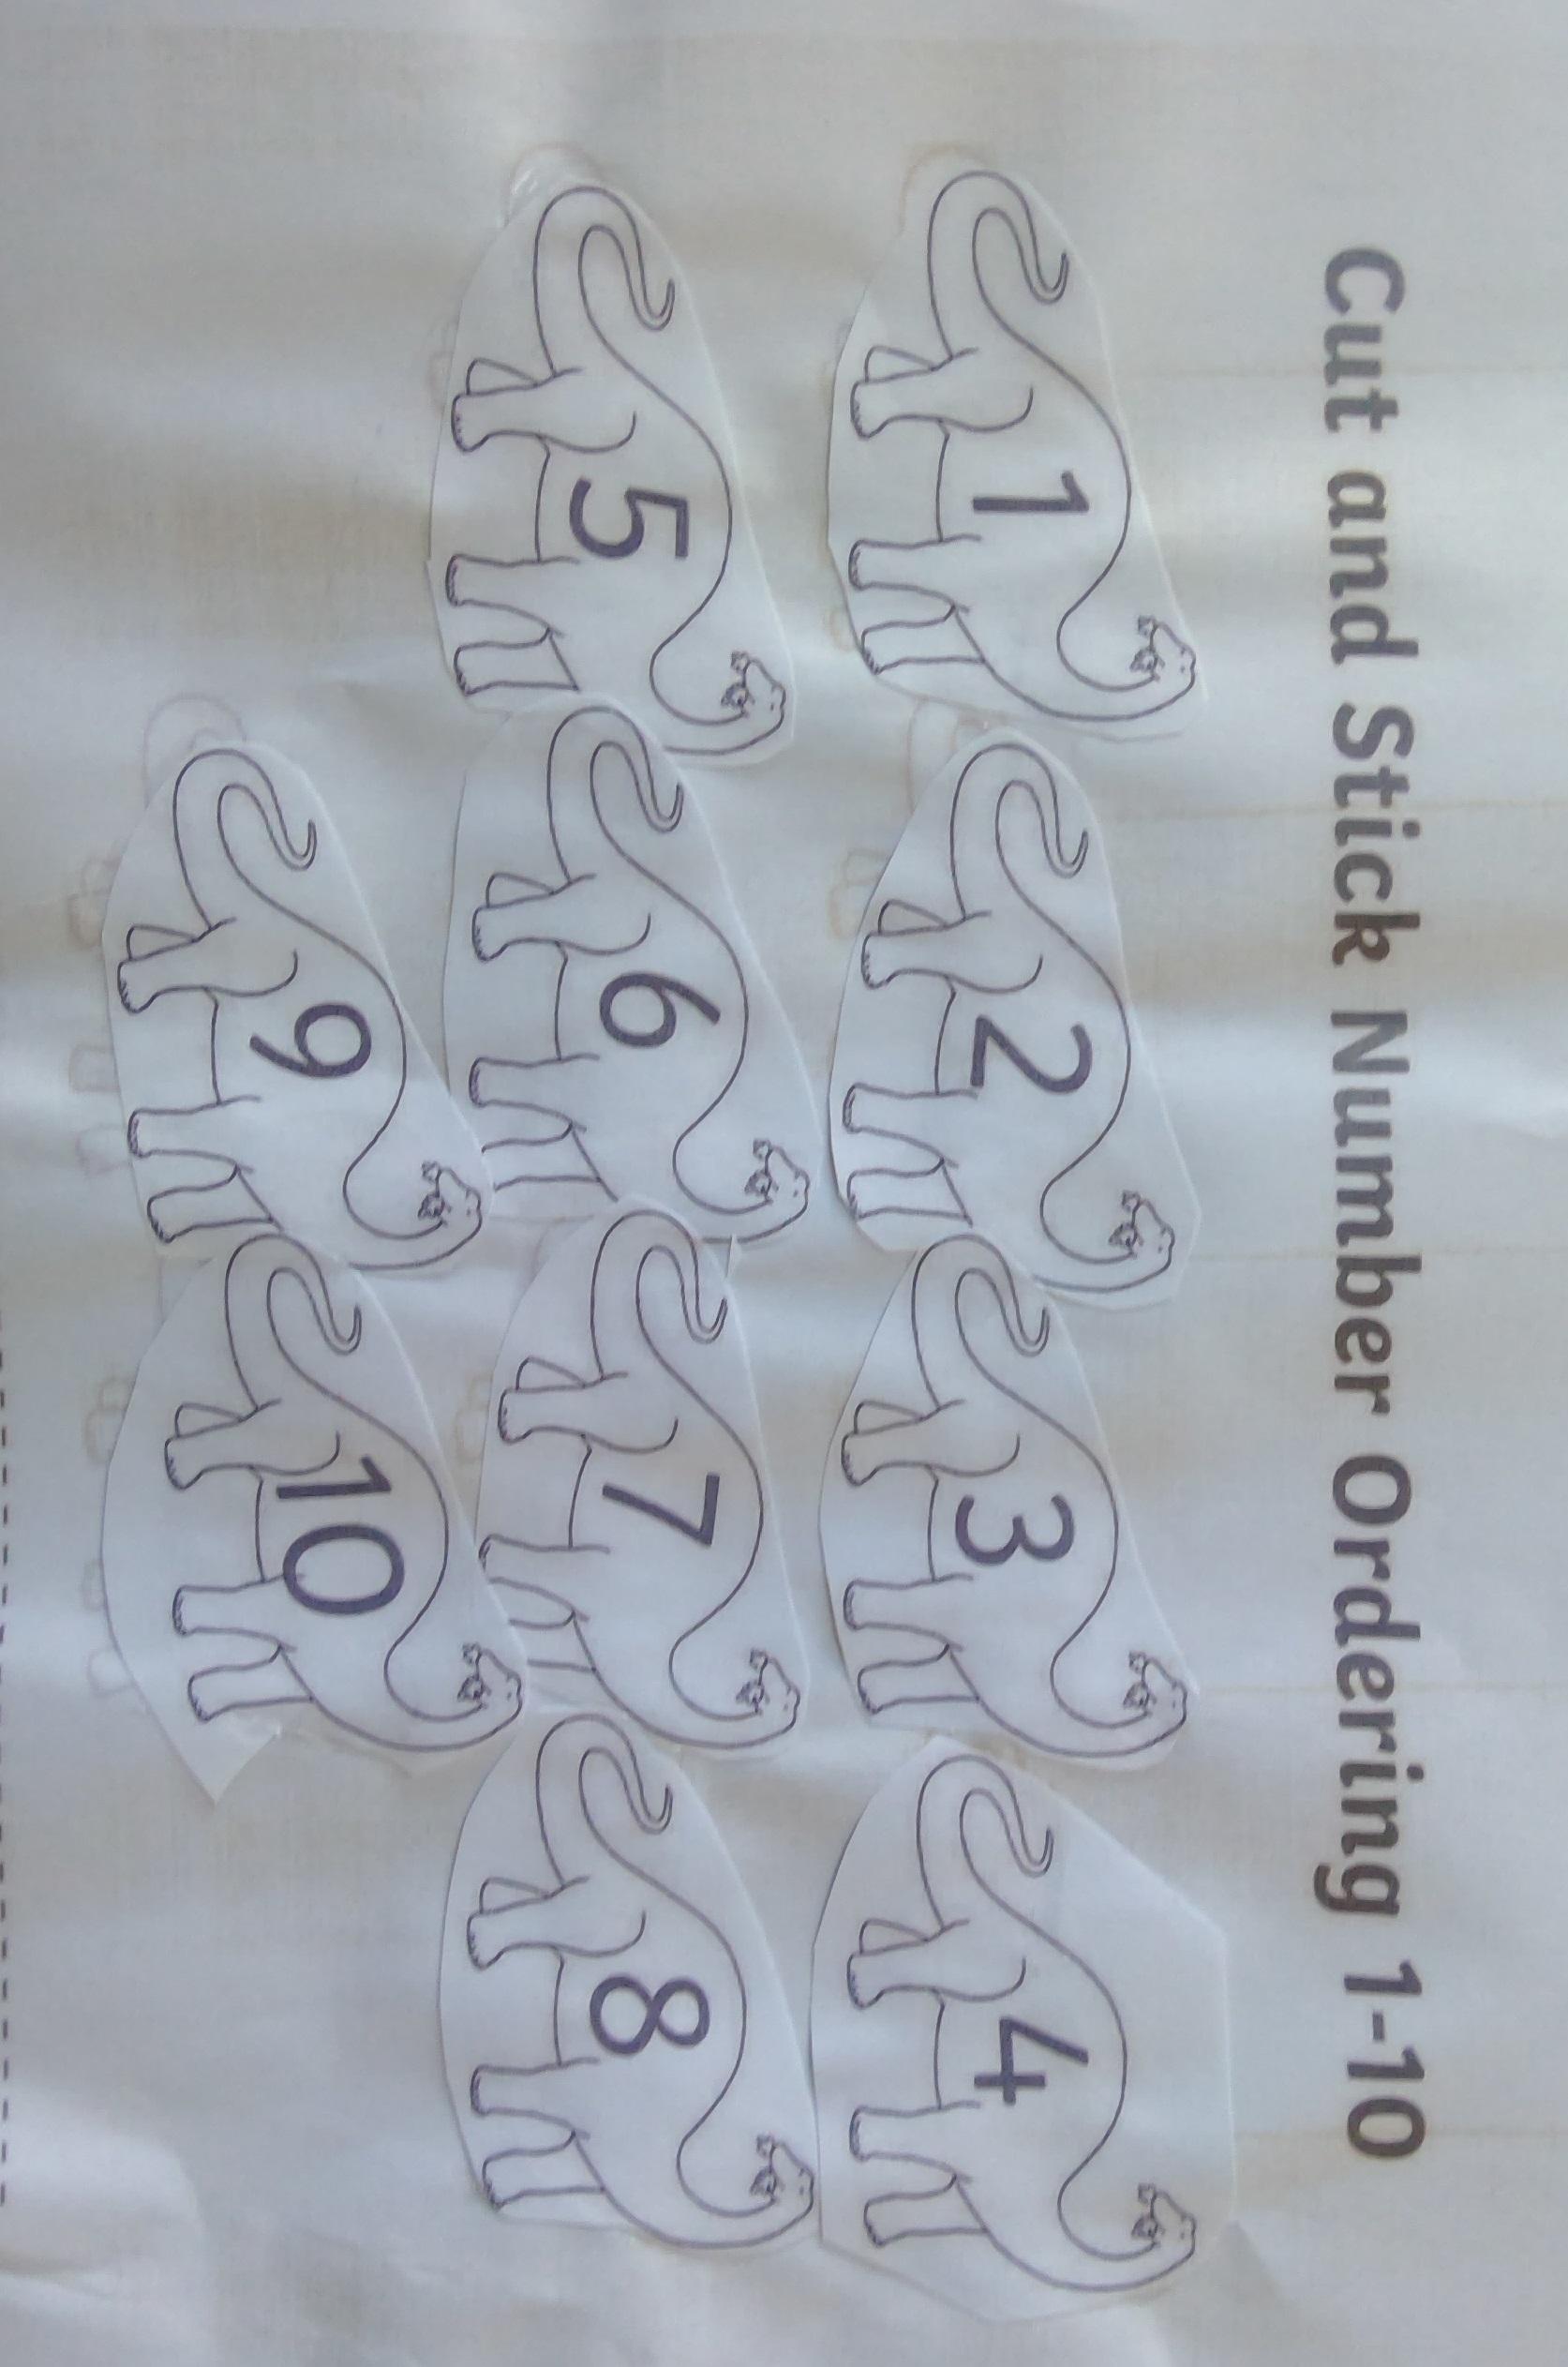 Cut and Stick Number Ordering 1-10
1 2 3 4
5 6 7 8
9 10